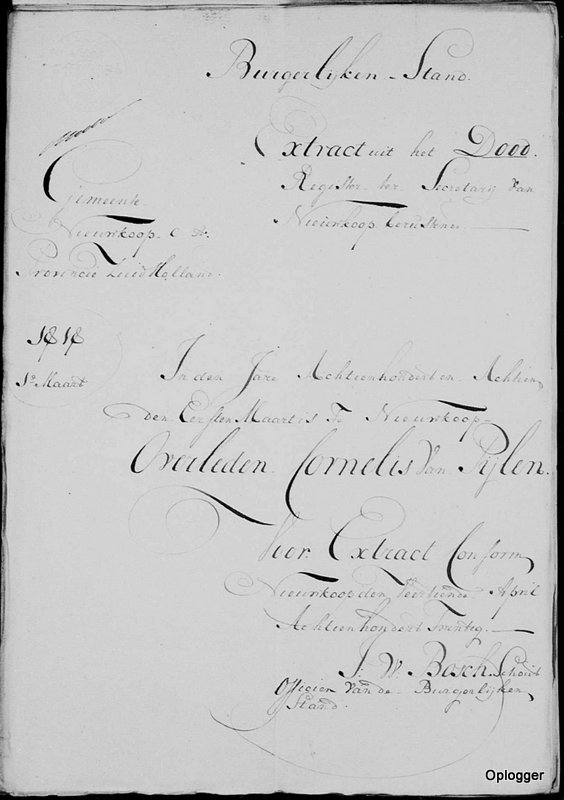 Burgerlijken - Stand.
Extract uit het Dood.
Register ter Secretary van
Nieuwkoop berustende
Gemeente
Nieuwkoop C A.
Provincie Zuid Holland.
1818
1e. Maart
In den Jare Achtienhondert en Achtien
den Eersten Maart is Te Nieuwkoop
Overleden Cornelis Van Pijlen.
Voor Extract Conform
Nieuwkoop den Veertiende April
Achtienhondert Twinteg.
J. W. Bosch. Schout
Officier Van de Burgerlijken
Stand.
Oplogger